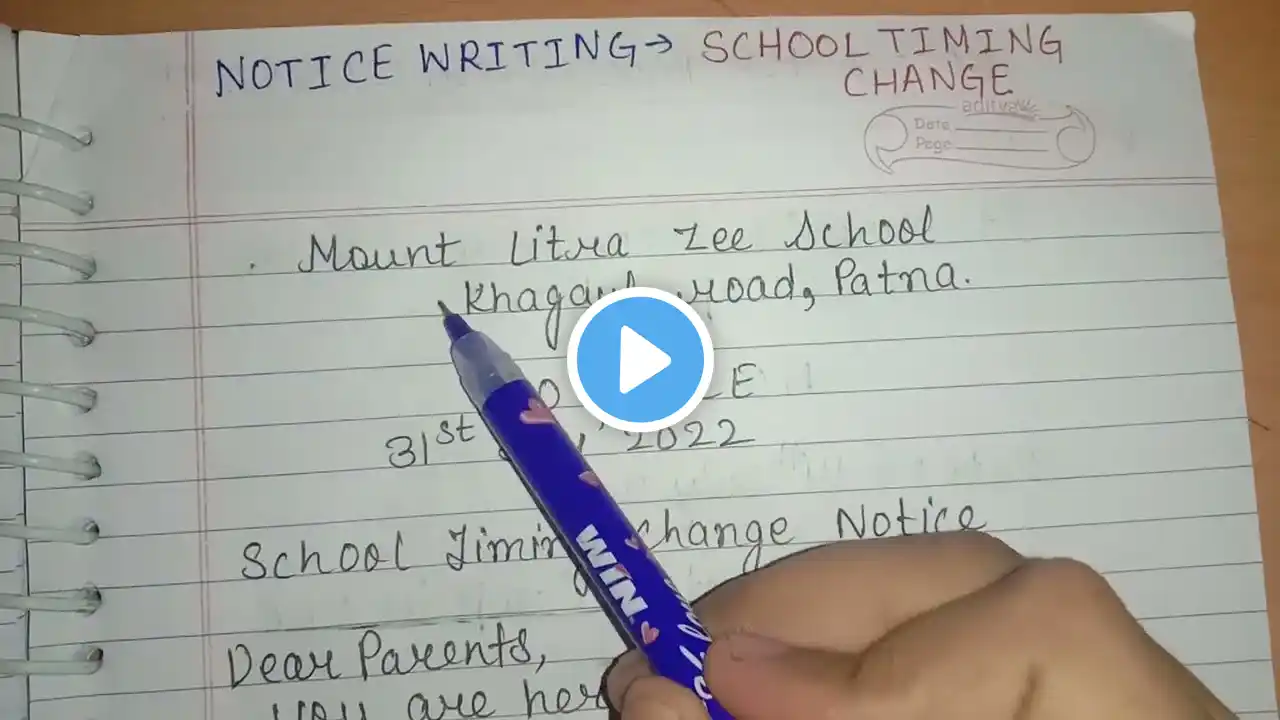 NOTICE WRITING → SCHOOL TIMING
CHANGE
aditya
Date
Page
Mount Litra Zee School
road, Patna.
31st 2022
School Timing Change Notice
Dear Parents,
you are
WIN